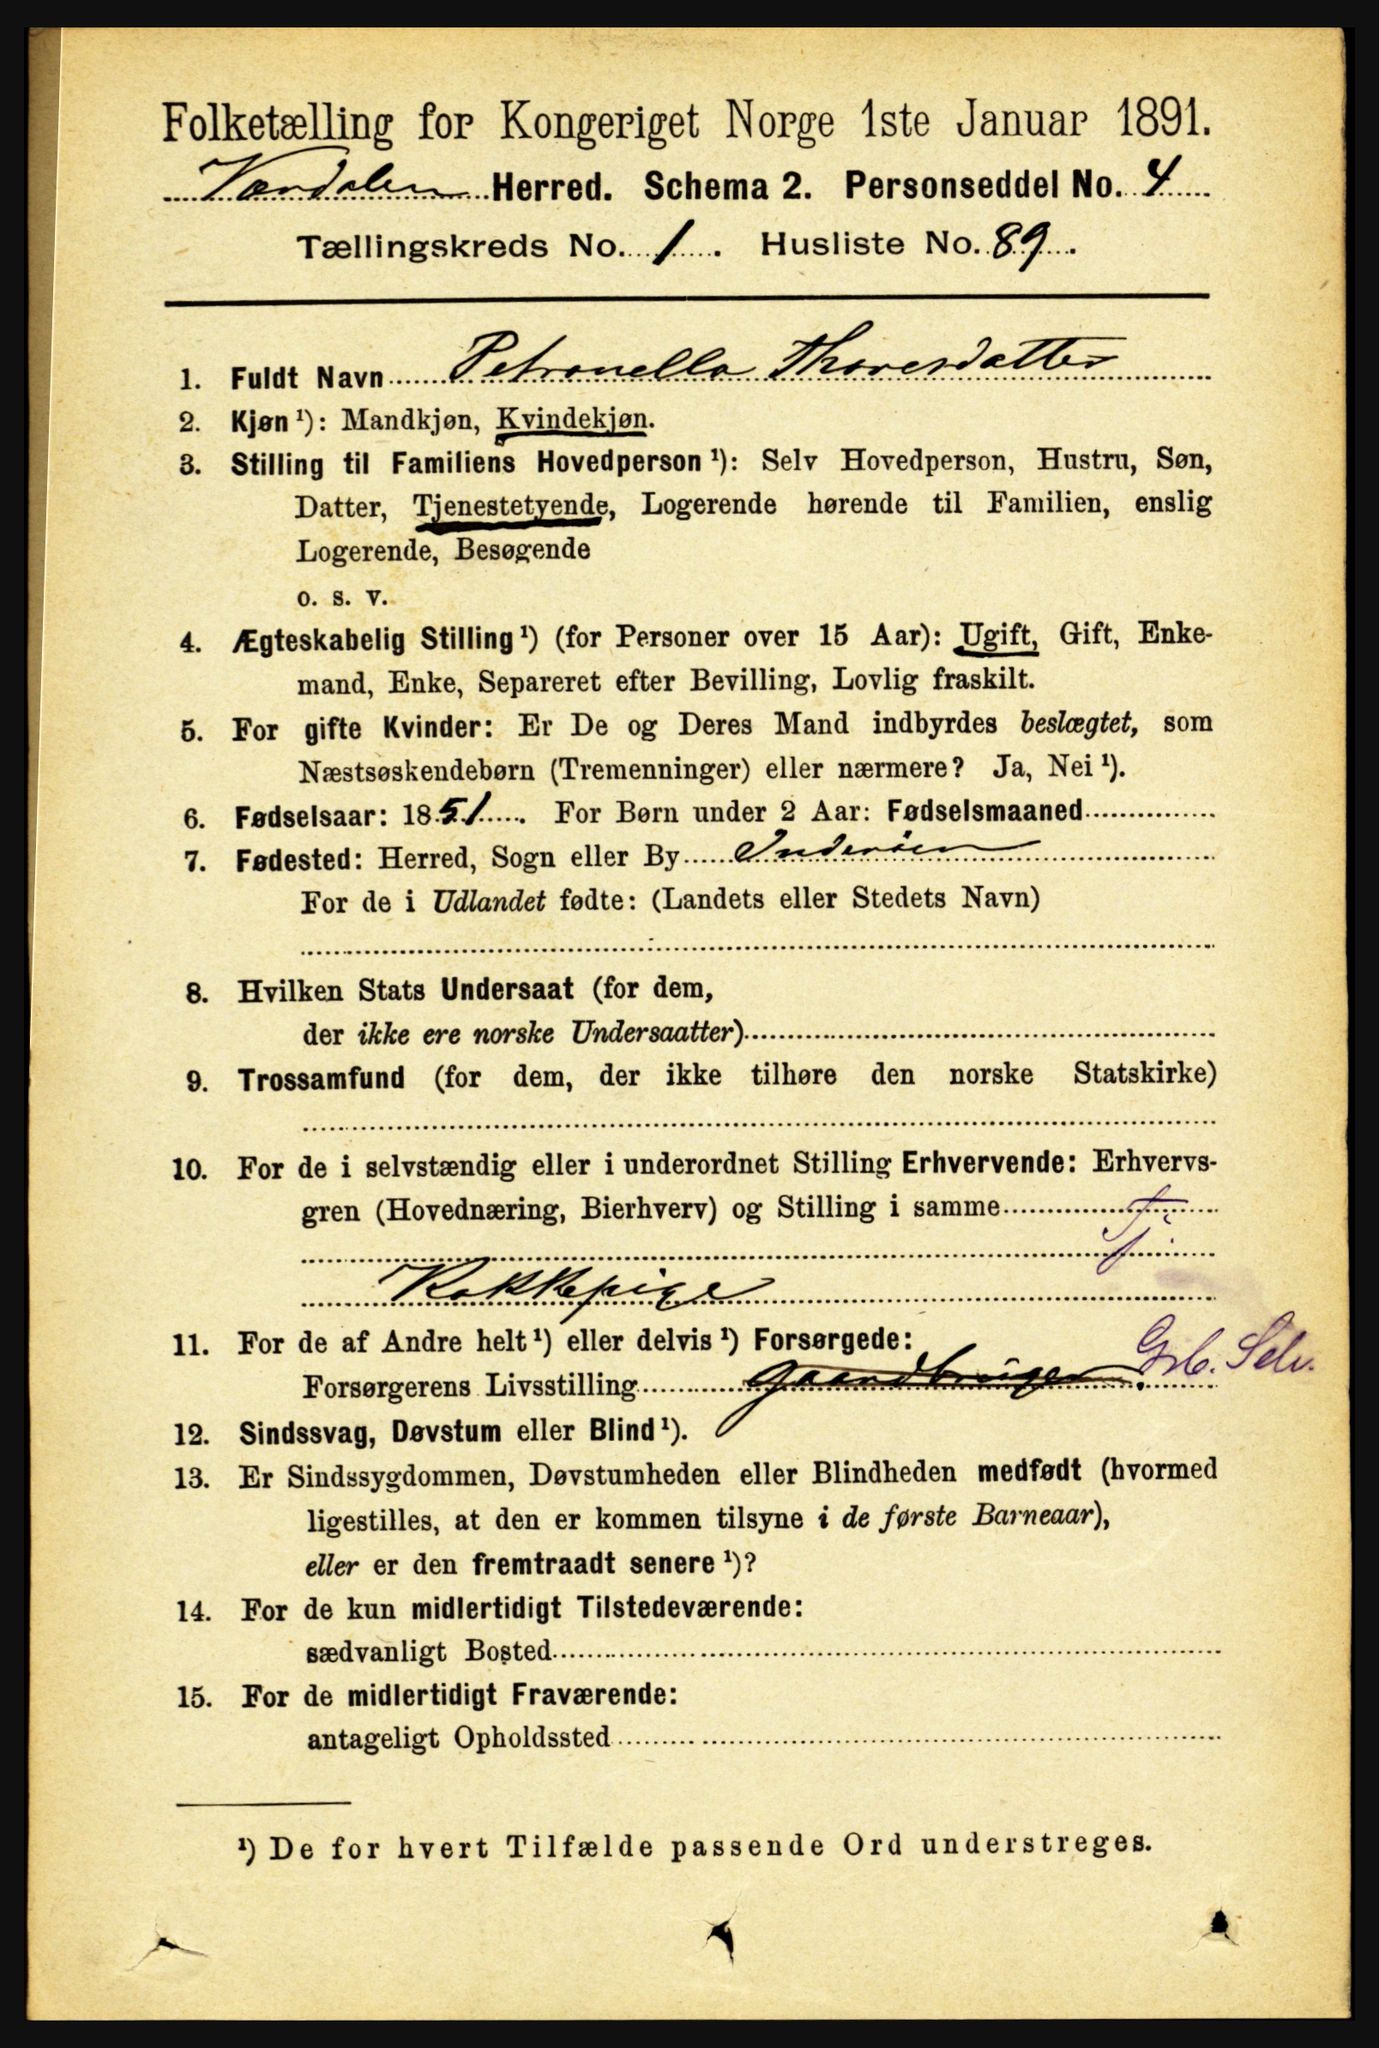 Folketælling for Kongeriget Norge 1ste Januar 1891.
Værdalen Herred. Schema 2. Personseddel No. 4
Tællingskreds No. 1. Husliste No. 89.
1. Fuldt Navn Petronella Thoresdatter
2. Kjøn ¹): Mandkjøn, Kvindekjøn.
3. Stilling til Familiens Hovedperson ¹): Selv Hovedperson, Hustru, Søn,
Datter, Tjenestetyende, Logerende hørende til Familien, enslig
Logerende, Besøgende
o. s. v.
4. Ægteskabelig Stilling ¹) (for Personer over 15 Aar): Ugift, Gift, Enke-
mand, Enke, Separeret efter Bevilling, Lovlig fraskilt.
5. For gifte Kvinder: Er De og Deres Mand indbyrdes beslægtet, som
Næstsøskendebørn (Tremenninger) eller nærmere? Ja, Nei ¹).
6. Fødselsaar: 1851. For Børn under 2 Aar: Fødselsmaaned
7. Fødested: Herred, Sogn eller By Inderøen
For de i Udlandet fødte: (Landets eller Stedets Navn)
8. Hvilken Stats Undersaat (for dem,
der ikke ere norske Undersaatter)
9. Trossamfund (for dem, der ikke tilhøre den norske Statskirke)
10. For de i selvstændig eller i underordnet Stilling Erhvervende: Erhvervs-
gren (Hovednæring, Bierhverv) og Stilling i samme
Tj.
Kokkepige
11. For de af Andre helt ¹) eller delvis ¹) Forsørgede:
Grb. Selv.
Forsørgerens Livsstilling Gaardbruger.
12. Sindssvag, Døvstum eller Blind ¹).
13. Er Sindssygdommen, Døvstumheden eller Blindheden medfødt (hvormed
ligestilles, at den er kommen tilsyne i de første Barneaar),
eller er den fremtraadt senere ¹)?
14. For de kun midlertidigt Tilstedeværende:
sædvanligt Bosted
15. For de midlertidigt Fraværende:
antageligt Opholdssted
¹) De for hvert Tilfælde passende Ord understreges.